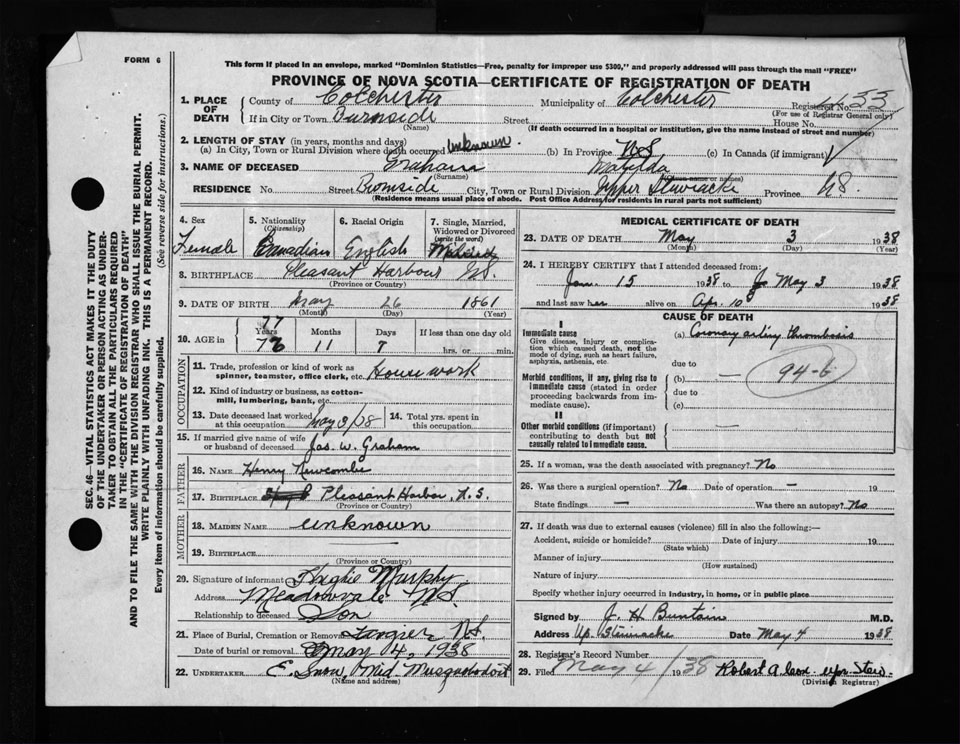 FORM 6
This form if placed in an envelope, marked "Dominion Statistics—Free, penalty for improper use $300," and properly addressed will pass through the mail "FREE"
PROVINCE OF NOVA SCOTIA—CERTIFICATE OF REGISTRATION OF DEATH
1. PLACE OF DEATH
County of Colchester Municipality of Colchester Registered No. 33
(For use of Registrar General only)
If in City or Town Burnside Street House No.
(Name) (If death occurred in a hospital or institution, give the name instead of street and number)
2. LENGTH OF STAY (in years, months and days)
(a) In City, Town or Rural Division where death occurred unknown. (b) In Province N S (c) In Canada (if immigrant) ✓
3. NAME OF DECEASED Graham Matilda
(Surname) (Given name or names)
RESIDENCE No. Street Burnside City, Town or Rural Division Upper Stewiacke Province N.S.
(Residence means usual place of abode. Post Office Address for residents in rural parts not sufficient)
4. Sex 5. Nationality (Citizenship) 6. Racial Origin 7. Single, Married, Widowed or Divorced (write the word)
Female Canadian English
8. BIRTHPLACE Pleasant Harbour N.S.
(Province or Country)
9. DATE OF BIRTH May 26 1861
(Month) (Day) (Year)
10. AGE in Years Months Days If less than one day old
77
76 11 7 hrs. or min.
OCCUPATION
11. Trade, profession or kind of work as spinner, teamster, office clerk, etc. House work
12. Kind of industry or business, as cotton-mill, lumbering, bank, etc.
13. Date deceased last worked at this occupation May 3/38 14. Total yrs. spent in this occupation
15. If married give name of wife or husband of deceased Jas. W. Graham
FATHER
16. NAME Henry Newcombe
17. BIRTHPLACE Pleasant Harbor, N.S.
(Province or Country)
MOTHER
18. MAIDEN NAME unknown
19. BIRTHPLACE —
(Province or Country)
20. Signature of informant Murphy
Address Meadowvale N.S.
Relationship to deceased Son
21. Place of Burial, Cremation or Removal Tangier N.S.
Date of burial or removal May 4, 1938
22. UNDERTAKER E. Snow, Mid. Musquodoboit
(Name and address)
MEDICAL CERTIFICATE OF DEATH
23. DATE OF DEATH May 3 1938
(Month) (Day) (Year)
24. I HEREBY CERTIFY that I attended deceased from:
Jan. 15 1938 to May 3 1938
and last saw her alive on Apr. 10 1938
CAUSE OF DEATH
I
Immediate cause
Give disease, injury or complication which caused death, not the mode of dying, such as heart failure, asphyxia, asthenia, etc.
(a) Coronary artery thrombosis
due to
94-6
Morbid conditions, if any, giving rise to immediate cause (stated in order proceeding backwards from immediate cause).
(b) —
due to
(c)
II
Other morbid conditions (if important) contributing to death but not causally related to immediate cause.
—
25. If a woman, was the death associated with pregnancy? No
26. Was there a surgical operation? No Date of operation — 19
State findings — Was there an autopsy? No
27. If death was due to external causes (violence) fill in also the following:—
Accident, suicide or homicide? Date of injury 19
(State which)
Manner of injury
(How sustained)
Nature of injury
Specify whether injury occurred in industry, in home, or in public place
Signed by J. H. Buntain M.D.
Address Up. Stewiacke Date May 4 1938
28. Registrar's Record Number
29. Filed May 4 1938 Robert A.
(Division Registrar)
SEC. 46—VITAL STATISTICS ACT MAKES IT THE DUTY
OF THE UNDERTAKER OR PERSON ACTING AS UNDER-
TAKER TO OBTAIN ALL THE PARTICULARS REQUIRED
IN THE "CERTIFICATE OF REGISTRATION OF DEATH"
AND TO FILE THE SAME WITH THE DIVISION REGISTRAR WHO SHALL ISSUE THE BURIAL PERMIT.
WRITE PLAINLY WITH UNFADING INK. THIS IS A PERMANENT RECORD.
Every item of information should be carefully supplied. (See reverse side for instructions.)